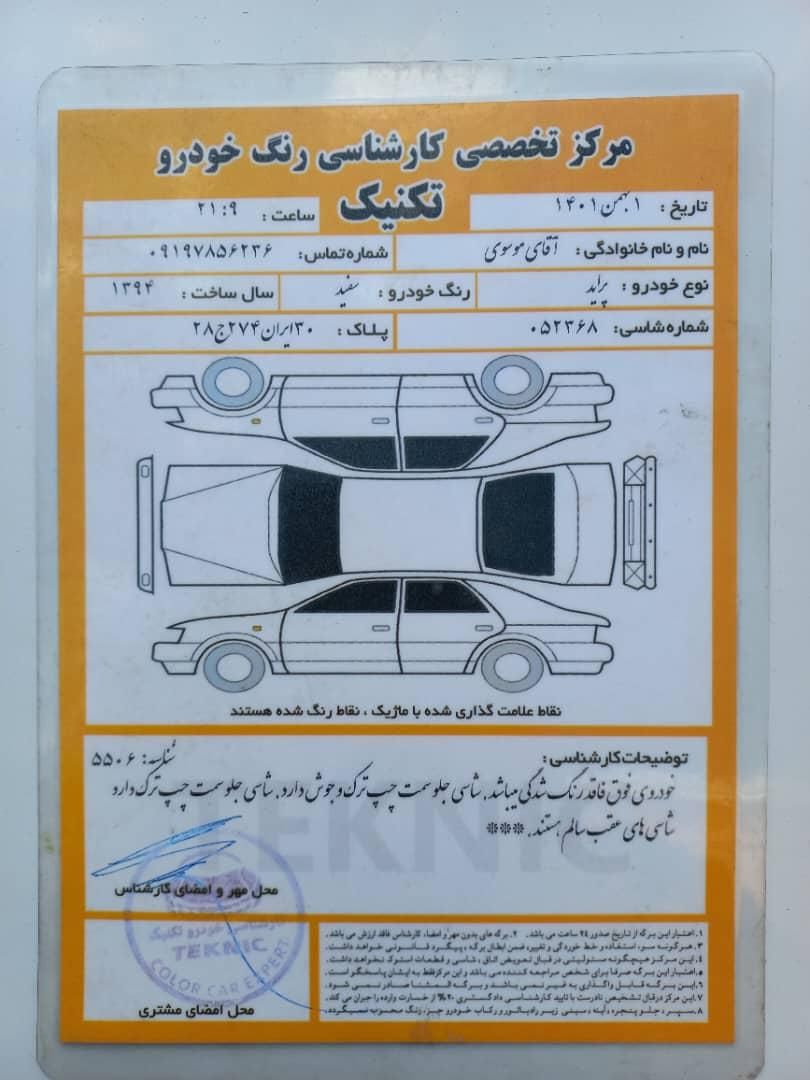 مرکز تخصصی کارشناسی رنگ خودرو
تکنیک
تاریخ : ۱ بهمن ۱۴۰۱
ساعت : ۲۱:۹
نام و نام خانوادگی : آقای موسوی
شماره تماس: ۰۹۱۹۷۸۵۶۲۳۶
نوع خودرو : پراید
رنگ خودرو : سفید
سال ساخت : ۱۳۹۴
شماره شاسی: ۰۵۲۳۶۸
پلاک : ۳۰ایران۲۷۴ج۲۸
نقاط علامت گذاری شده با ماژیک ، نقاط رنگ شده هستند
توضیحات کارشناسی :
شناسه: ۵۵۰۶
خودروی فوق فاقد رنگ شدگی میباشد. شاسی جلو سمت چپ ترک و جوش دارد. شاسی جلو سمت چپ ترک دارد
شاسی های عقب سالم هستند. ***
TEKNIC
محل مهر و امضای کارشناس
کارشناسی خودرو تکنیک
TEKNIC
COLOR CAR EXPERT
محل امضای مشتری
۱. اعتبار این برگه از تاریخ صدور ۲۴ ساعت می باشد. ۲. برگه های بدون مهر و امضاء کارشناس فاقد ارزش می باشد.
۳. هرگونه سوء استفاده و خط خوردگی و تغییر، ضمن ابطال برگه ، پیگرد قانونی خواهد داشت.
۴. این مرکز هیچگونه مسئولیتی در قبال تعویض اتاق ، شاسی و قطعات استوک نخواهد داشت.
۵. اعتبار این برگه صرفا برای شخص مراجعه کننده می باشد و این مرکز فقط به ایشان پاسخگو است.
۶. این برگه قابل واگذاری به غیر نمی باشد و برگه المثنا صادر نمی شود.
۷. این مرکز درقبال تشخیص نادرست با تایید کارشناسی دادگستری ۲۰% از خسارت وارده را جبران می کند.
۸. سپر ، جلو پنجره ، آینه ، سینی زیر رادیاتور و رکاب خودرو جزء رنگ محسوب نمیگردد.